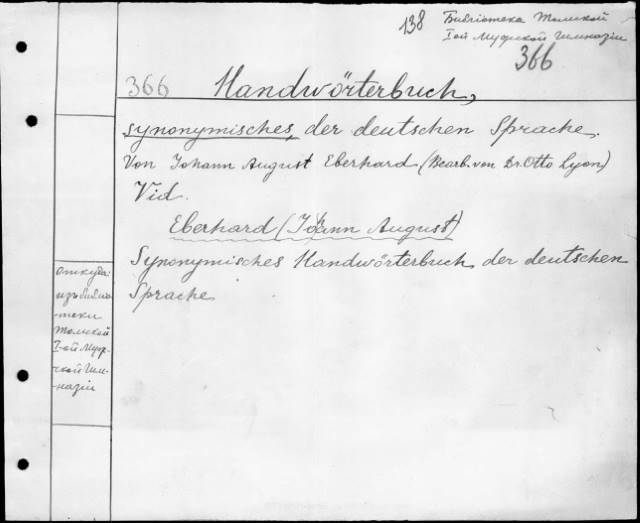 138 Библіотека Томской
I-ой Мужской Гимназіи
366
366 Handwörterbuch,
synonymisches, der deutschen Sprache.
Von Johann August Eberhard (Bearb. von Dr. Otto Lyon)
Vid.
Eberhard (Johann August)
Synonymisches Handwörterbuch der deutschen
Sprache
откуда:
изъ библіо-
-теки
Томской
I-ой Муж-
-ской Гим-
-назіи